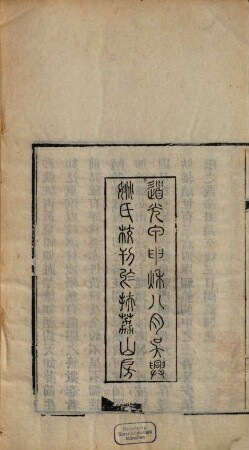 道光甲申秋八月吳興
姚氏校刊於扶荔山房
Bayerische
Staatsbibliothek
München